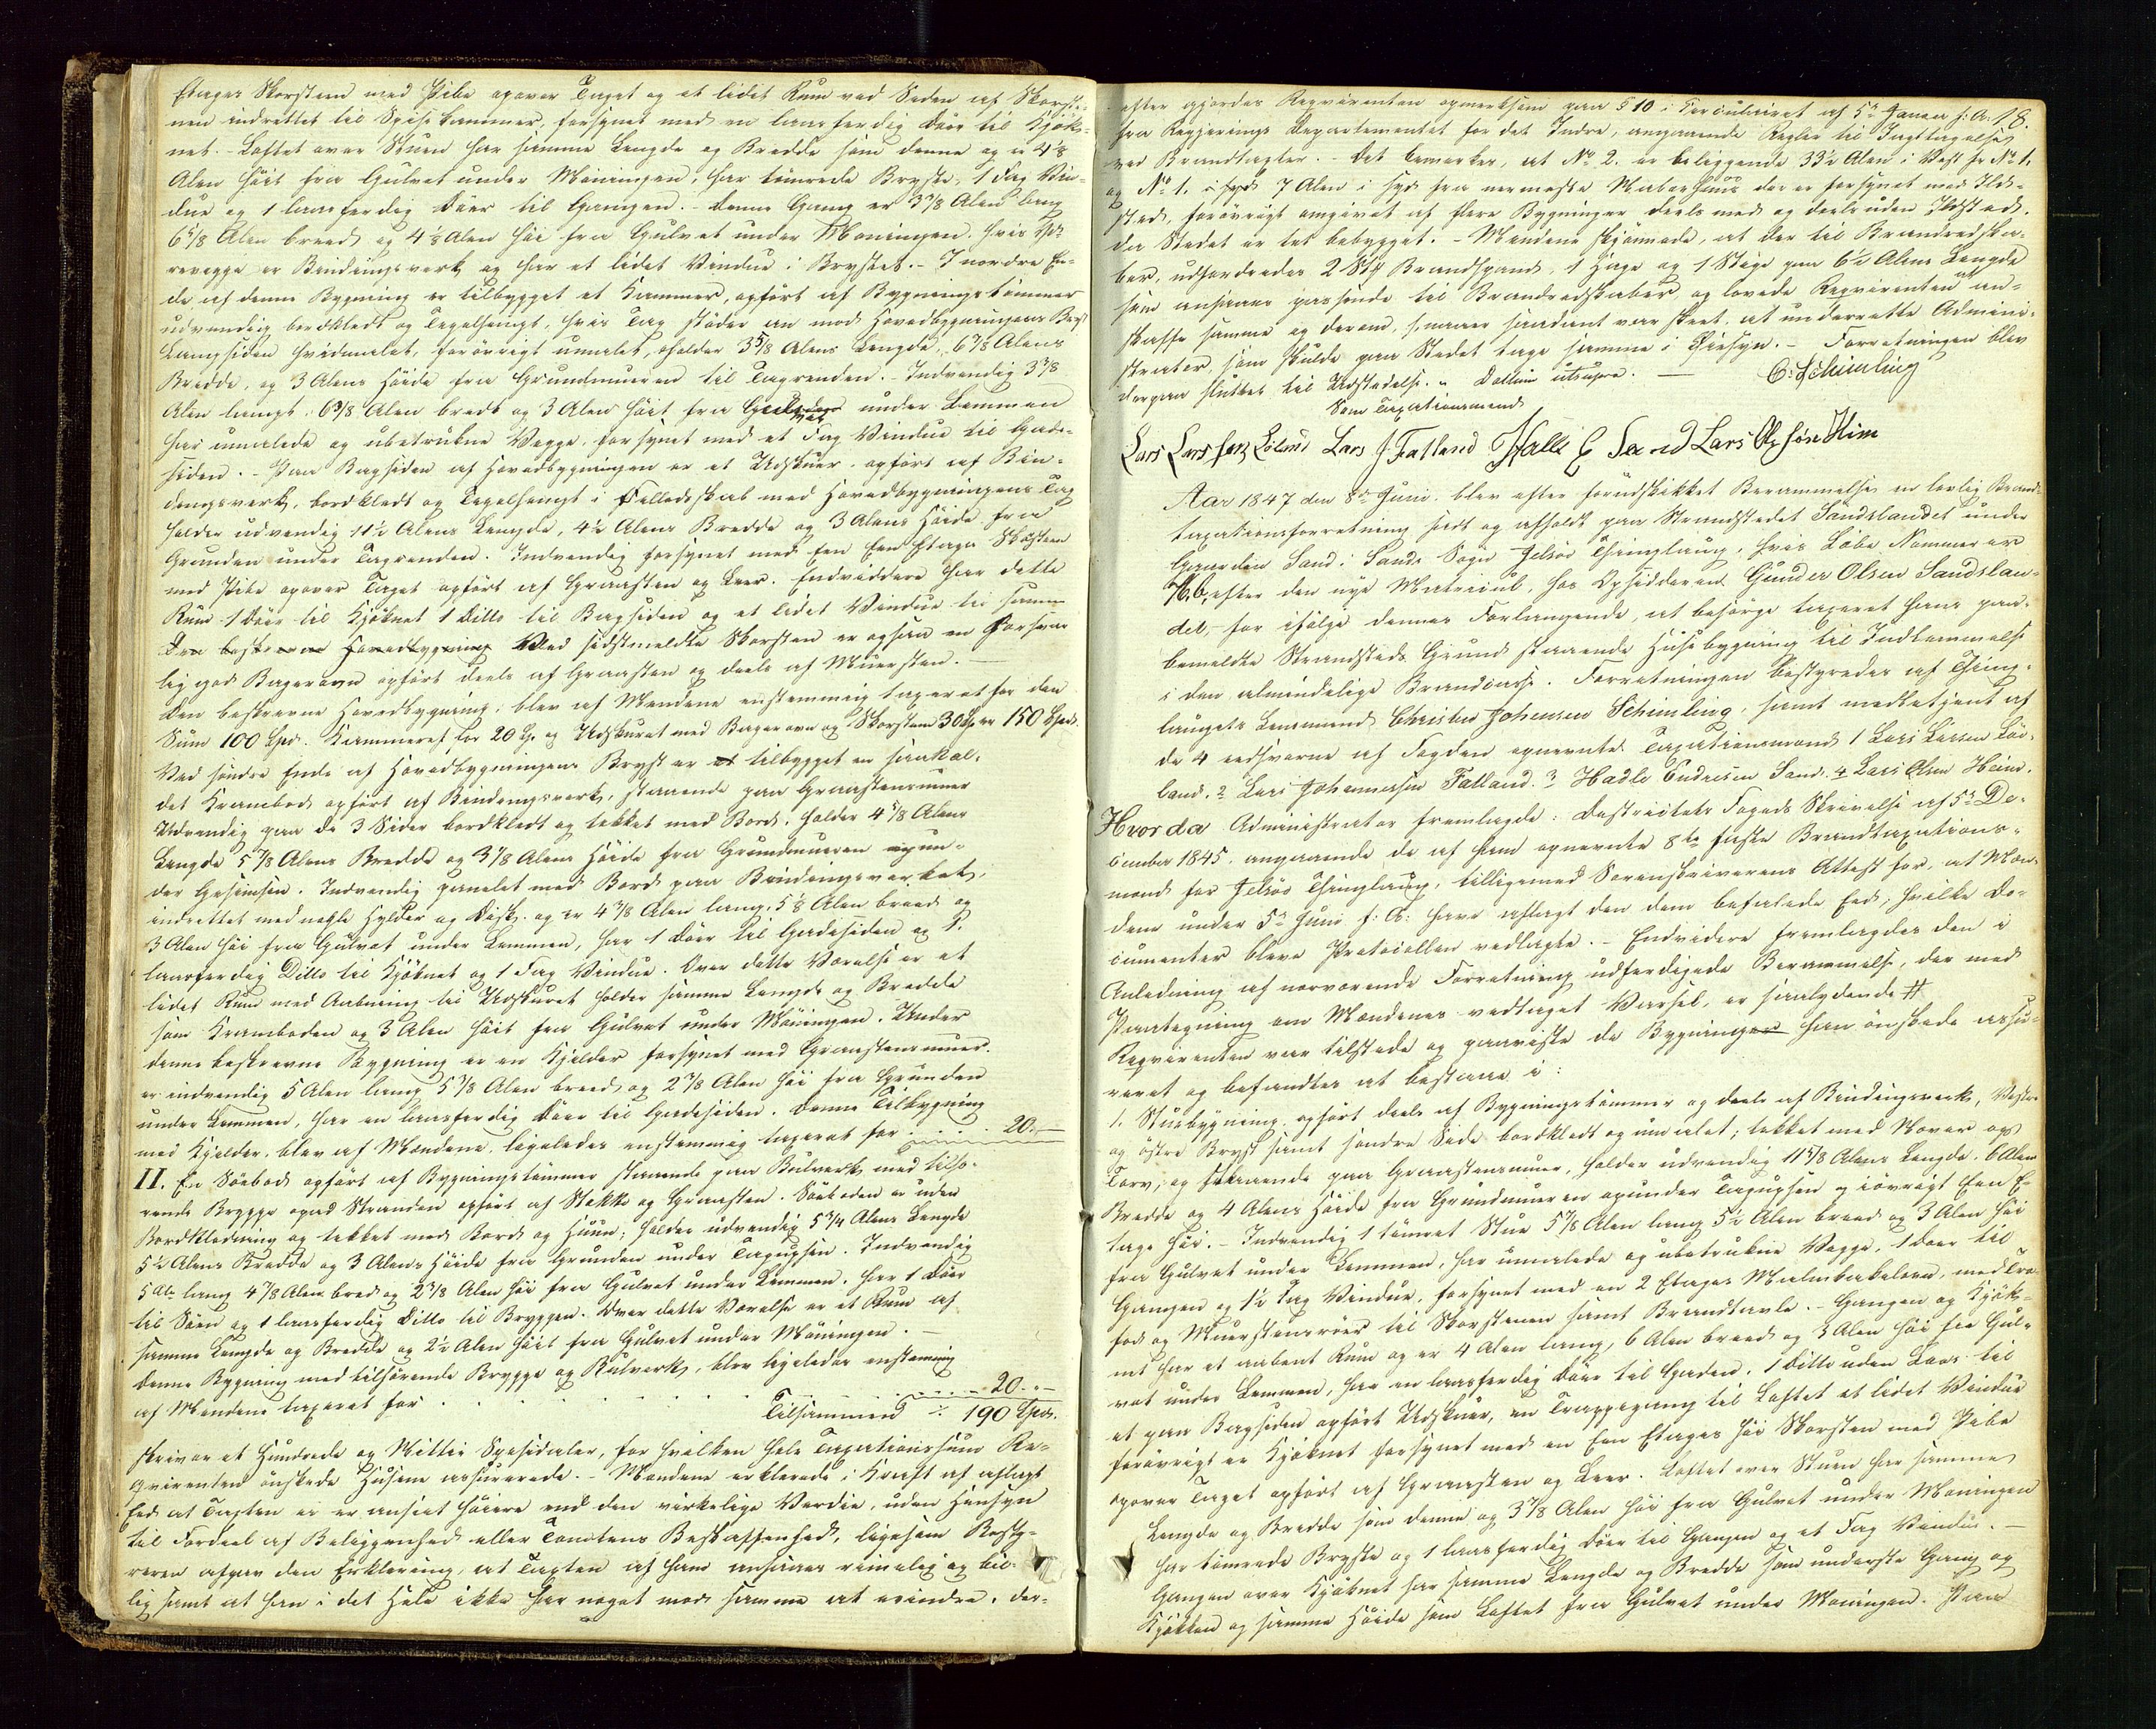 Etages Skorsteen med Pibe opover Taget og et lidet Rum ved Siden af Skorste-
nen indrettet til Spisekammer, forsynet med en laasferdig Döer til Kjök-
net. - Loftet over Stuen har samme Længde og Bredde som denne og er 4 1/8
Alen höit fra Gulvet under Möningen, har tömrede Bryste, 1 Fag Vin-
due og 1 laasferdig Döer til Gangen. - Denne Gang er 3 7/8 Alen lang
6 5/8 Alen breed og 4 1/8 Alen höi fra Gulvet under Moningen, hvis
revegge er Bindingsverk og har et lidet Vindue i Brystet. - I nordre En-
de af denne Bygning er tilbygget et Kammer, opfört af Bygningstömmer
udvendig bordkledt og Tegelhengt, hvis Tag stöder an mod Hovedbygningens Bryst
Langsiden hvidmalet, forövrigt umalet, holder 3 5/8 Alens Lengde, 6 7/8 Alens
Bredde, og 3 Alens Höide fra Grundmuren til Tagrenden. - Indvendig 3 3/8
Alen langt, 6 3/8 Alen bredt og 3 Alen höit fra Gulvet under Lemmen
har umalede og ubetrukne Vegge, forsynet med et Fag Vindue til Gade-
siden. - Paa Bagsiden af Hovedbygningen er et Udskuer, opfört af Bin-
dingsverk, bordkledt og Tegelhengt i Felledsskab med Hovedbygningens Tag
holder udvendig 11 1/2 Alens Lengde, 4 1/2 Alens Bredde og 3 Alens Höide fra
Grunden under Tagrenden. Indvendig forsynet med een een Etages Skorsteen
med Pibe opover Taget opfört af Graasten og Leer. Endviddere har dette
Rum 1 Döer til Kjöknet 1 Ditto til Bagsiden og et lidet Vindue til samme
Den beskrevne Hovedbygning Ved sidstmeldte Skorsten er ogsaa en forsvar
lig god Bagerovn opfört deels af Graasten og deels af Muersten. -
Den beskrevne Hovedbygning, blev af Mendene enstemmig taxeret for den
Sum 100 Spd. Kammeret for 20 Sp. og Udskuret med Bagerovn og Skorsteen 30 Sp. 150 Spd.
Ved söndre Ende af Hovedbygningens Bryst er et tilbygget en saakal-
det Krambod opfört af Bindingsverk, staaende paa Graastensmuer
Udvendig paa de 3 Sider bordkledt og tekket med Bord. holder 4 5/8 Alens
Lengde 5 7/8 Alens Bredde og 3 7/8 Alens Höide fra Grundmueren opun-
der Gesimsen. Indvendig panelet med Bord paa Bindingsverket,
indrettet med nogle Hylder og Disk. og er 4 3/8 Alen lang, 5 5/8 Alen breed og
3 Alen höi fra Gulvet under Lemmen, har 1 Döer til Gadesiden og 1.
laasferdig Ditto til Kjöknet og 1 Fag Vindue. Over dette Verelse er et
lidet Rum med Aabning til Udskuret holder samme Lengde og Bredde
som Kramboden og 3 Alen höit fra Gulvet under Möningen. Under
denne beskrevne Bygning er en Kjelder forsynet med Graastensmuer.
er indvendig 5 Alen lang 5 7/8 Alen breed og 2 7/8 Alen höi fra Grunden
under Lemmen, har en laasferdig Döer til Gadesiden. Denne Tilbygning
med Kjelder, blev af Mendene, ligeledes enstemmig taxeret for . . . . . 20. -
II. En Söebod opfört af Bygningstömmer staaende paa Bulverk med tilhö-
rende Brygge opad Stranden opfört af Stokke og Graasten. Söeboden er uden
Bordkledning og tekket med Bord og Huun; holder udvendig 5 3/4 Alens Lengde
5 1/2 Alens Bredde og 3 Alens Höide fra Grunden under Tagupsen. Indvendig
5 Al. lang 4 7/8 Alen bred og 2 7/8 Alen höi fra Gulvet under Lemmen. har 1 Döer
til Söen og 1 laasferdig Ditto til Bryggen. Over dette Verelse er et Rum af
samme Lengde og Bredde og 2 1/2 Alen höit fra Gulvet under Möningen. -
Denne Bygning med tilhörende Brygge og Bulverk, blev ligeledes enstemmig
af Mendene taxeret for . . . . . . . . . . 20. -
Tilsammen ./. 190 Spd.
skriver et Hundrede og Nitti Spesidaler, for hvilken hele Taxationssum Re-
qvirenten önskede Husene assurerede. - Mendene erklerede i Kraft af aflagt
Eed at Taxten ei er ansat höiere end den virkelige Verdie, uden Hensyn
til Fordeel af Beliggenhed eller Tomtens Beskaffenhed, ligesom Besty-
reren afgav den Erklering, at Taxten af ham ansaaes rimelig og bil-
lig samt at han i det Hele ikke har noget mod samme at erindre. Der-
18.
efter gjordes Reqvirenten opmerksom paa § 10 i Circulairet af 5te Januar f: A:
fra Regjerings Departementet for det Indre, angaaende Regler til Iagttagelse
ved Brandtaxter. - Det bemerkes, at No 2. er beliggende 33 1/2 Alen i Vest fr No 1.
og No 1. i Syd 7 Alen i Syd fra nermeste Naboehuus der er forsynet med Ild-
sted, forövrigt omgivet af flere Bygninger deels med og deels uden Ildsted.
da Stedet er tet bebygget. - Mendene skjönnede, at der til Brandredska-
ber, udfordredes 2 Stk Brandspand, 1 Hage og 1 Stige paa 6 1/2 Alens Lengde
som ansaaes passende til Brandredskaber og lovede Reqvirenten at an-
skaffe samme og derom, snarest saadant var skeet, at underrette Admini-
strator, som skulde paa Stedet tage samme i Öiesyn. - Forretningen blev
derpaa sluttet til Udstedelse. - Datum utsupra. - C: Schimling
Som Taxationsmend
Lars Larssen Löland Lars J. Fatland Halle E Sand Lars Olssön Him
Aar 1847 den 8de Juni. blev efter forudskikket Berammelse en lovlig Brand-
taxationsforretning sadt og afholdt paa Strandstedet Sandslandet under
Gaarden Sand i Sands Sogn Jelsöe Thinglaug, hvis Löbe Nummer er
76, efter den nye Matricul, hos Opsidderen Gunder Olsen Sandslan-
det, for ifölge dennes Forlangende, at besörge taxeret hans paa
bemeldte Strandsteds Grund staaende Husebygning til Indlemmelse
i den almindelige Brandcasse. Forretningen bestyredes af Thing-
laugets Lensmand Christen Johansen Schimling, samt medbetjent af
de 4 eedsvorne af Fogden opnevnte Taxationsmend 1 Lars Larsen Löe-
land. 2 Lars Johannessen Fatland. 3 Hadle Endresen Sand. 4 Lars Olsen Heim.
Hvor da Administrator fremlagde: Distrietets Fogeds Skrivelse af 5te De-
cember 1845. angaaende de af ham opnevnte 8te faste Brandtaxations-
mend for Jelsöe Thinglaug, tilligemed Sorenskriverens Attest for, at Men-
dene under 5te Juni f: A: have aflagt den dem befalede Eed; hvilke Do-
cumenter bleve Protocollen vedlagte. - Endvidere fremlagdes den i
Anledning af nerverende Forretning udferdigede Berammelse, der med
Paategning om Mendenes vedtaget Varsel, er saalydende #
Reqvirenten var tilstede og paaviste de Bygninger han önskede assu-
reret og befandtes at bestaae i:
1. Stuebygning opfört deels af Bygningstömmer og deels af Bindingsverk, Vestre
og östre Bryst samt söndre Side bordkledt og umalet; tekket med Never og
Torv, og staaende paa Graastensmuer, holder udvendig 11 5/8 Alens Lengde. 6 Alens
Bredde og 4 Alens Höide fra Grundmueren opunder Tagupsen og iövrigt een E-
tage höi. - Indvendig 1 tömret Stue 5 7/8 Alen lang 5 1/2 Alen breed og 3 Alen höi
fra Gulvet under Lemmen, har umalede og ubetrukne Vegge, 1 Döer til
Gangen og 1 1/2 Fag Vindue, forsynet med en 2 Etages Malmkakelovn, med Tre-
fod og Muerstensröer til Skorstenen samt Brandtavle. - Gangen og Kjök-
net har et aabent Rum og er 4 Alen lang, 6 Alen breed og 3 Alen höi fra Gul-
vet under Lemmen, har en laasferdig Döer til Gaden, 1 Ditto uden Laas til
et paa Bagsiden opfört Udskuer, en Trappegang til Loftet et lidet Vindue
forövrigt er Kjöknet forsynet med en Een Etages höi Skorsten med Pibe
opover Taget opfört af Graasten og Leer. Loftet over Stuen har samme
Lengde og Bredde som denne og 3 7/8 Alen höi fra Gulvet under Moningen
har tömrede Bryste og 1 laasferdig Döer til Gangen og et Fag Vindue. -
Gangen over Kjöknet har samme Lengde og Bredde som underste Gang og
Kjökken og samme Höide som Loftet fra Gulvet under Moningen. Paa